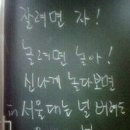 잘려면 자!
놀려면 놀아!
신나게 놀다보면
서울대는 널 버려도